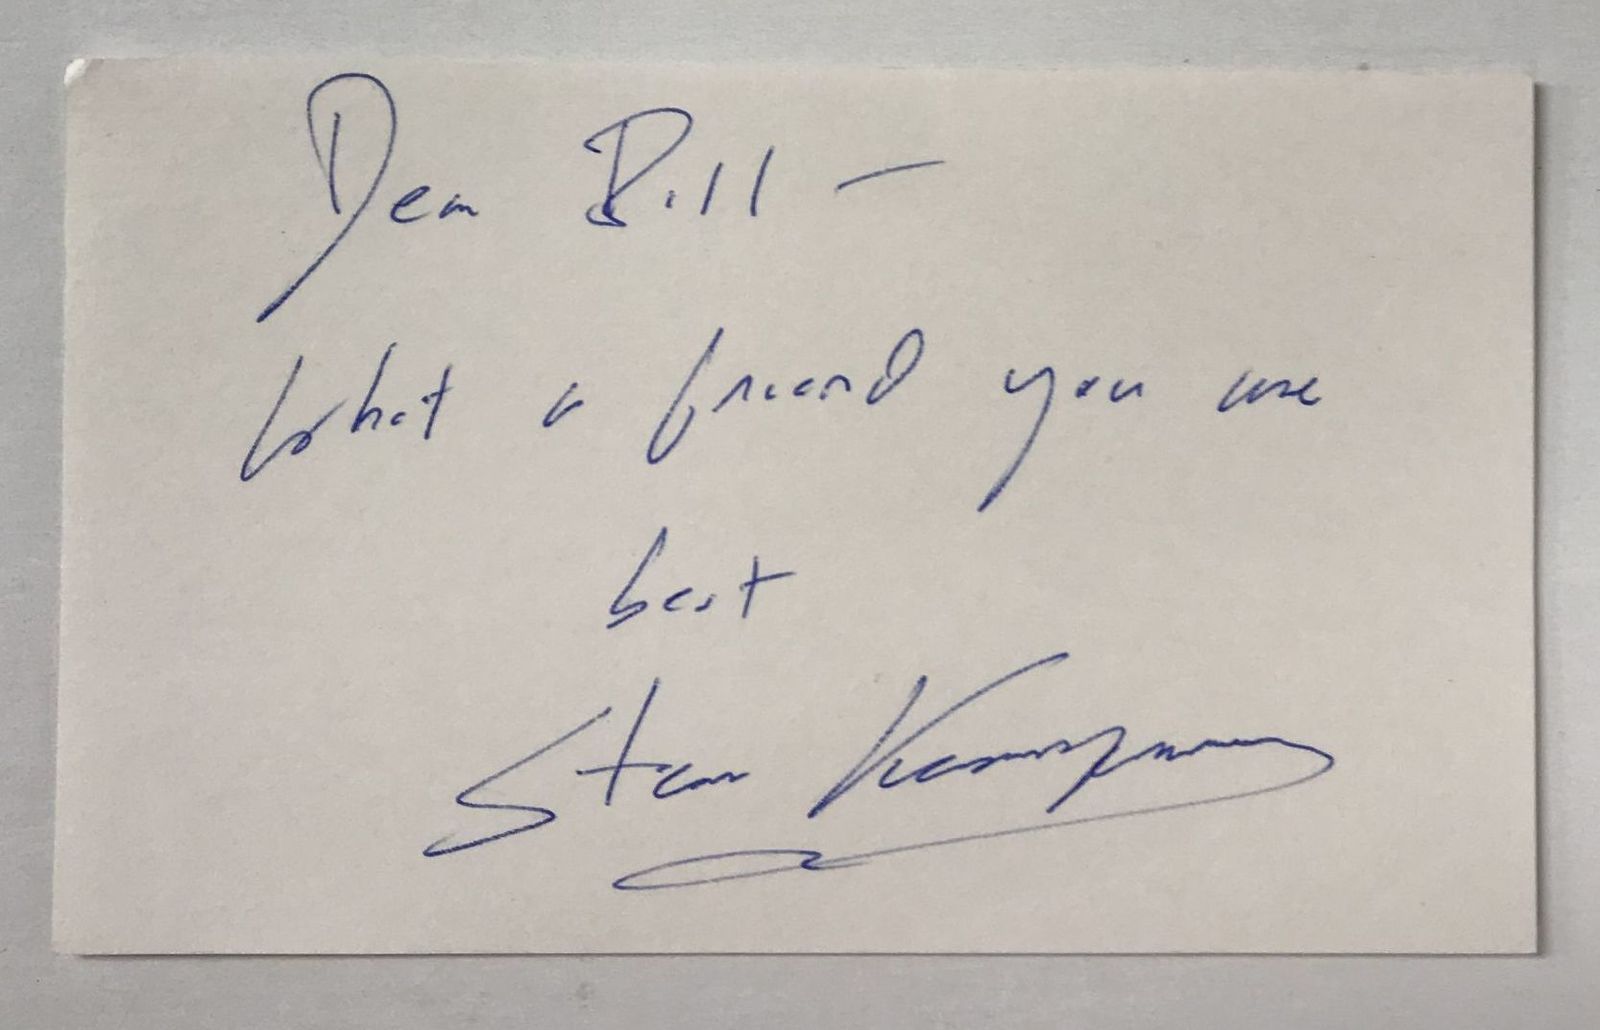 Dear Bill —
What a friend you are
best
Stan